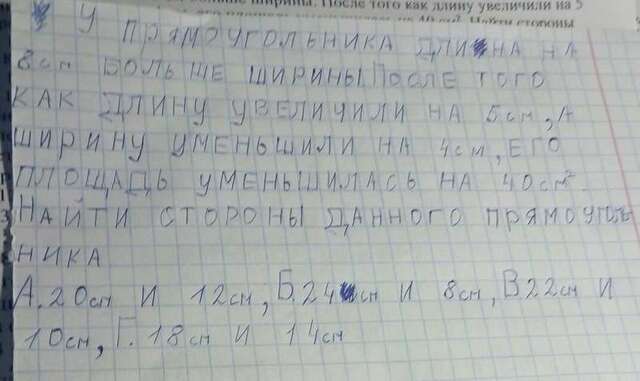 больше ширины. После того как длину увеличили на 5
на 40 см². Найти стороны
У ПРЯМОУГОЛЬНИКА ДЛИНА НА
8см БОЛЬШЕ ШИРИНЫ. ПОСЛЕ ТОГО
КАК ДЛИНУ УВЕЛИЧИЛИ НА 5см, А
ШИРИНУ УМЕНЬШИЛИ НА 4см, ЕГО
ПЛОЩАДЬ УМЕНЬШИЛАСЬ НА 40см².
НАЙТИ СТОРОНЫ ДАННОГО ПРЯМОУГОЛЬ
НИКА
А.20см И 12см, Б.24см И 8см, В22см И
10см, Г.18см И 14см